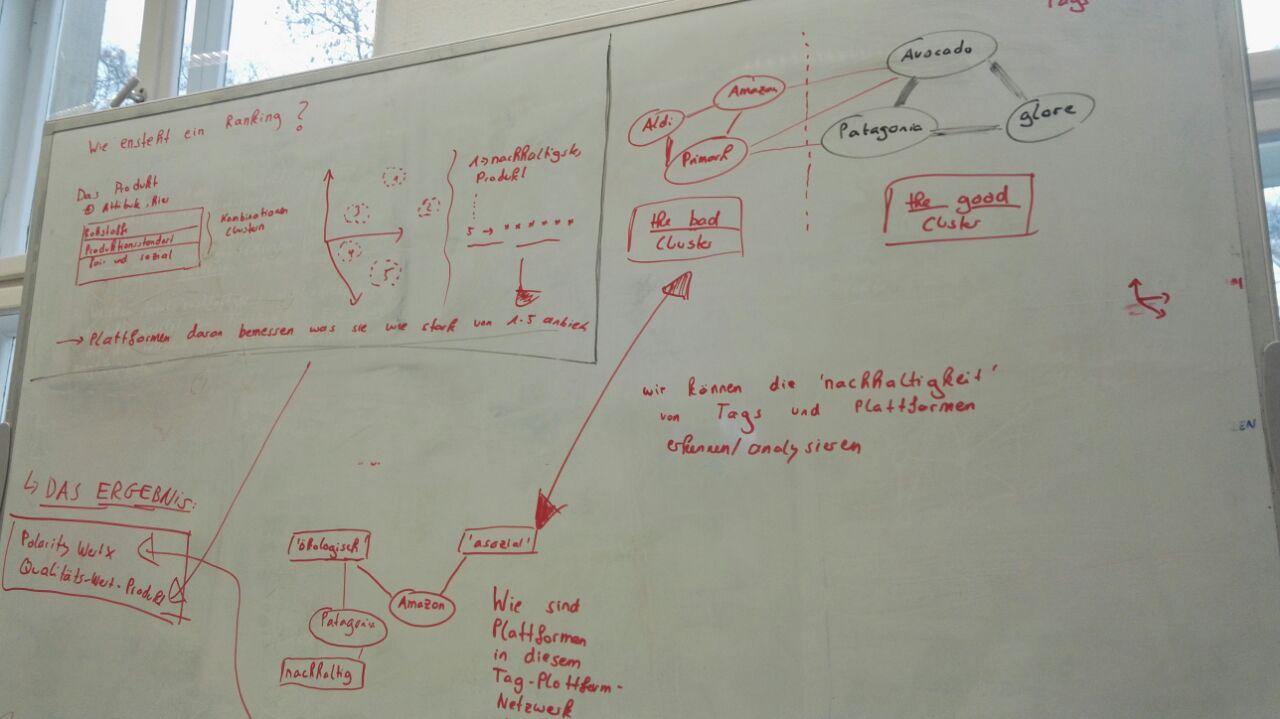 Tags
Wie ensteht ein Ranking?
Das Produkt
Rohstoffe
Produktionsstandard
fair und sozial
Kombinationen
clustern
1
2
3
4
5
1 → nachhaltigstes
Produkt
5 → * * * * * *
→ Plattformen daran bemessen was sie wie stark von 1-5 anbieten
Aldi
Amazon
Primark
the bad
Cluster
Avocado
Patagonia
glore
the good
Cluster
wir können die 'nachhaltigkeit'
von Tags und Plattformen
erkennen/analysieren
↳ DAS ERGEBNIS:
Polarity Wert x
Qualitäts-Wert-Produkt
'ökologisch'
'asozial'
Patagonia
Amazon
nachhaltig
Wie sind
Plattformen
in diesem
Tag-Plattform-
Netzwerk